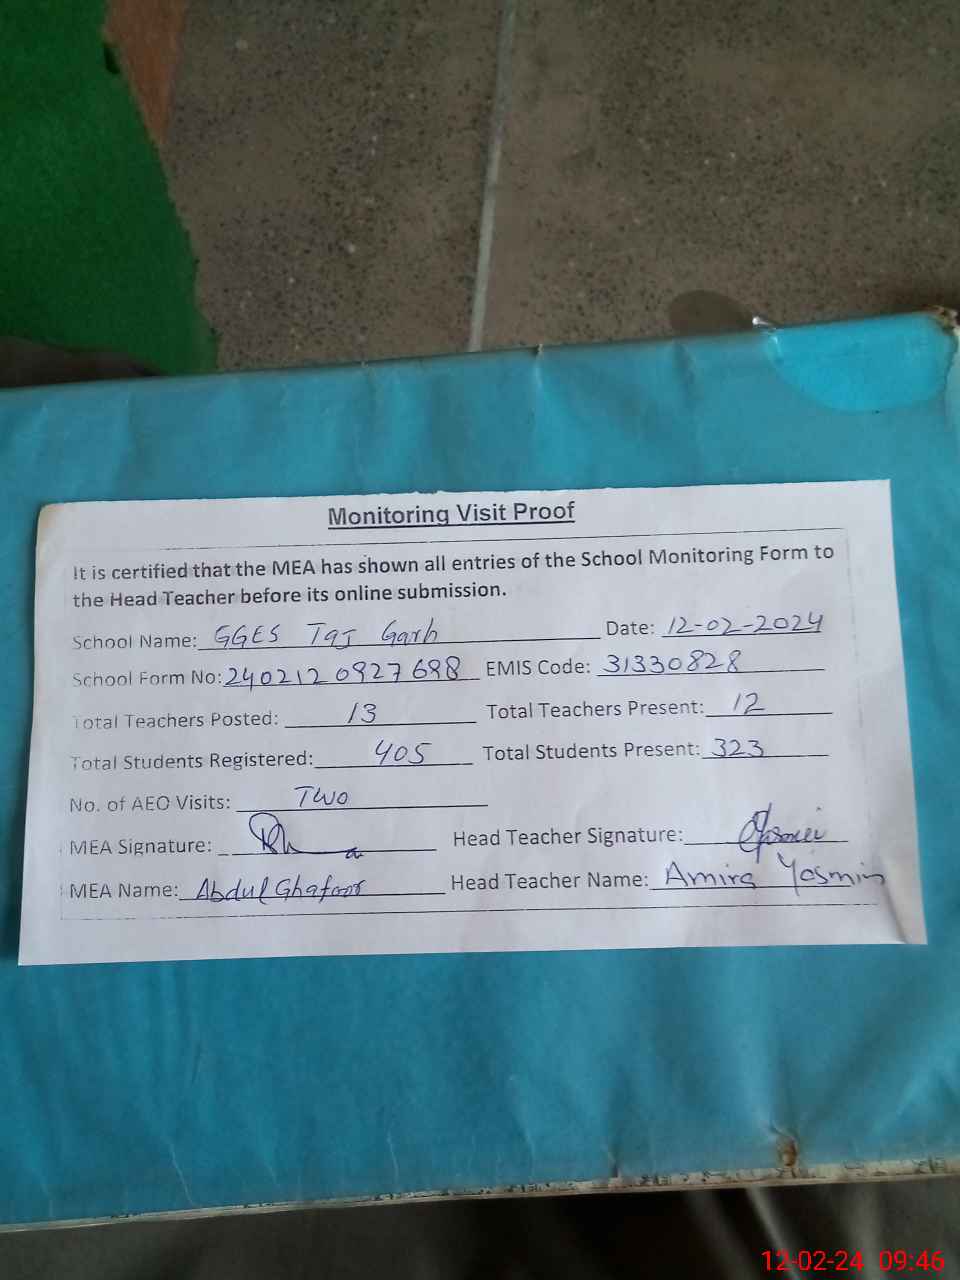 Monitoring Visit Proof
It is certified that the MEA has shown all entries of the School Monitoring Form to
the Head Teacher before its online submission.
School Name: GGES Taj Garh Date: 12-02-2024
School Form No: 240212 0927698 EMIS Code: 31330828
Total Teachers Posted: 13 Total Teachers Present: 12
Total Students Registered: 405 Total Students Present: 323
No. of AEO Visits: Two
MEA Signature: Head Teacher Signature:
MEA Name: Abdul Ghafoor Head Teacher Name: Amira Yasmin
12-02-24 09:46